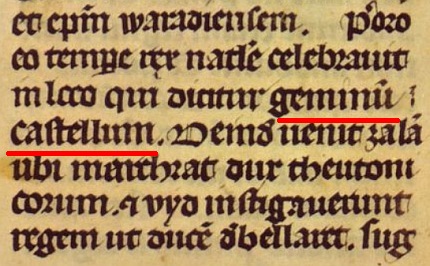 et ep̄m waradiensem. Porro
eo tempe rex natl̄e celebrauit
in loco qui dicitur geminū
castellum. Deinđ uenit zalā
ubi marchrat dux theutoni
corum. ⁊ vyd instigauerunt
regem ut ducē d̄bellaret. sug